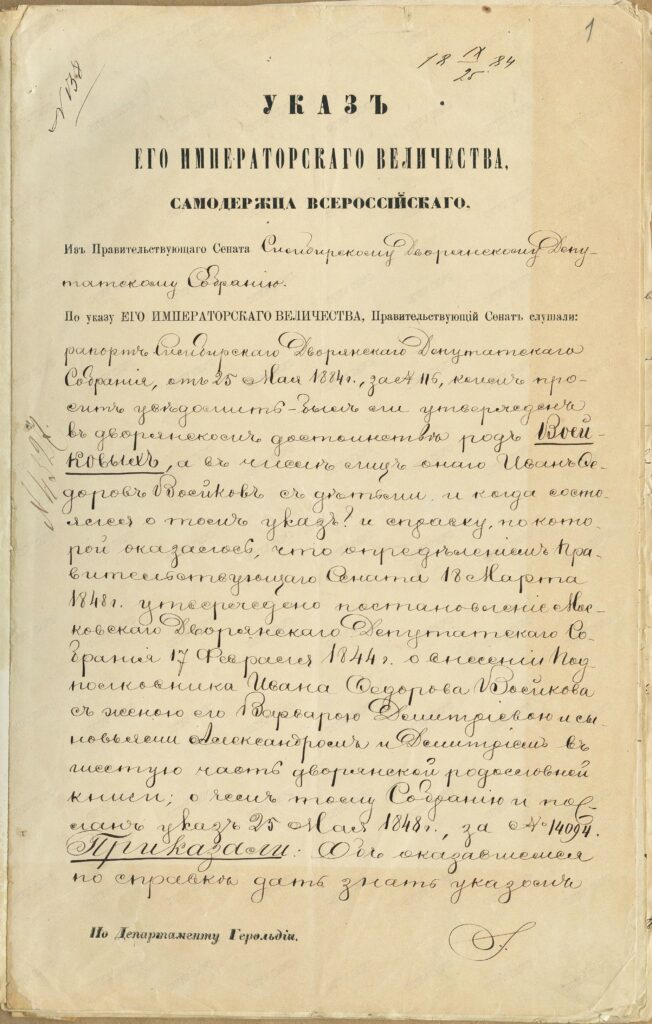 1
18 IX/25 84
№ 138
УКАЗЪ
ЕГО ИМПЕРАТОРСКАГО ВЕЛИЧЕСТВА,
САМОДЕРЖЦА ВСЕРОССІЙСКАГО.
Изъ Правительствующаго Сената Симбирскому Дворянскому Депу-
татскому Собранію.
По указу ЕГО ИМПЕРАТОРСКАГО ВЕЛИЧЕСТВА, Правительствующій Сенатъ слушали:
рапортъ Симбирскаго Дворянскаго Депутатскаго
Собранія, отъ 25 Мая 1884 г., за № 116, коимъ про-
ситъ увѣдомить – былъ ли утвержденъ
въ дворянскомъ достоинствѣ родъ Воей-
ковыхъ, а въ числѣ лицъ онаго Иванъ Ѳе-
доровъ Воейковъ съ дѣтьми и когда состо-
ялся о томъ указъ? и справку, по кото-
рой оказалось, что опредѣленіемъ Пра-
вительствующаго Сената 18 Марта
1848 г. утверждено постановленіе Мос-
ковскаго Дворянскаго Депутатскаго Со-
бранія 17 Февраля 1844 г. о внесеніи Под-
полковника Ивана Ѳедорова Воейкова
съ женою его Варварою Дмитріевою и сы-
новьями Александромъ и Дмитріемъ въ
шестую часть дворянской родословной
книги; о чемъ тому Собранію и пос-
ланъ указъ 25 Мая 1848 г., за № 14094.
Приказали: Объ оказавшемся
по справкѣ дать знать указомъ
По Департаменту Герольдіи.